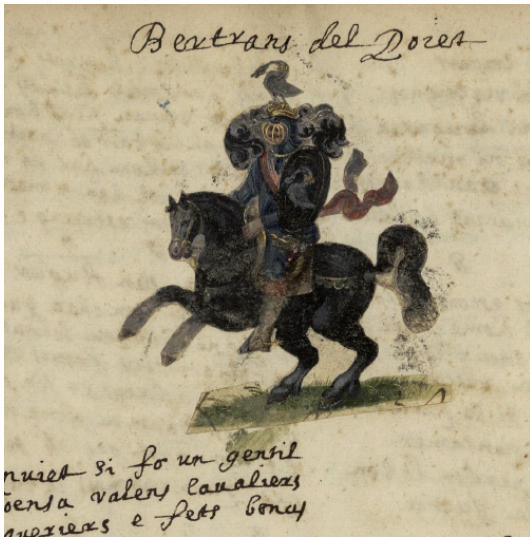 Bertrans del Poiet
nuiet si fo un gentil
oensa valens cavaliers
guerriers e fets bonas